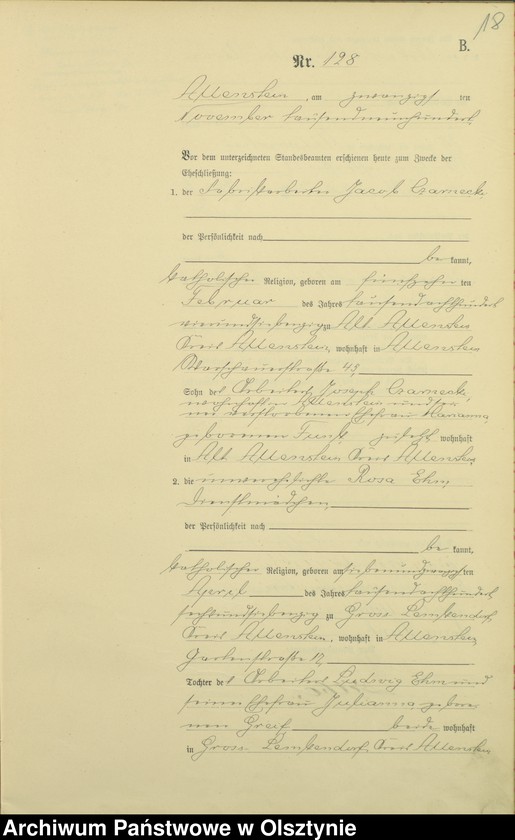 18
B.
Nr. 128
Allenstein, am zwanzigsten
November tausendneunhundert.
Vor dem unterzeichneten Standesbeamten erschienen heute zum Zwecke der
Eheschließung:
1. der Fabrikarbeiter Jacob Czarnecki
der Persönlichkeit nach
be kannt,
katholischer Religion, geboren am fünfzehnten
Februar des Jahres tausendachthundert
vierundsiebenzig zu Alt Allenstein
Kreis Allenstein, wohnhaft in Allenstein
Warschauerstraße 43,
Sohn des Arbeiters Joseph Czarnecki
wohnhaft in Allenstein und
verstorbenen Ehefrau Marianna
geborenen wohnhaft
in Alt Allenstein Kreis Allenstein
2. die unverehelichte Rosa Ehm,
Dienstmädchen,
der Persönlichkeit nach
be kannt,
katholischer Religion, geboren am siebenundzwanzigsten
April des Jahres tausendachthundert
sechsundsiebenzig zu Gross Lemkendorf,
Kreis Allenstein, wohnhaft in Allenstein,
Gartenstraße
Tochter des Arbeiters Ludwig Ehm und
seiner Ehefrau Julianna gebore
nen Greif beide wohnhaft
in Gross Lemkendorf, Kreis Allenstein
Archiwum Państwowe w Olsztynie